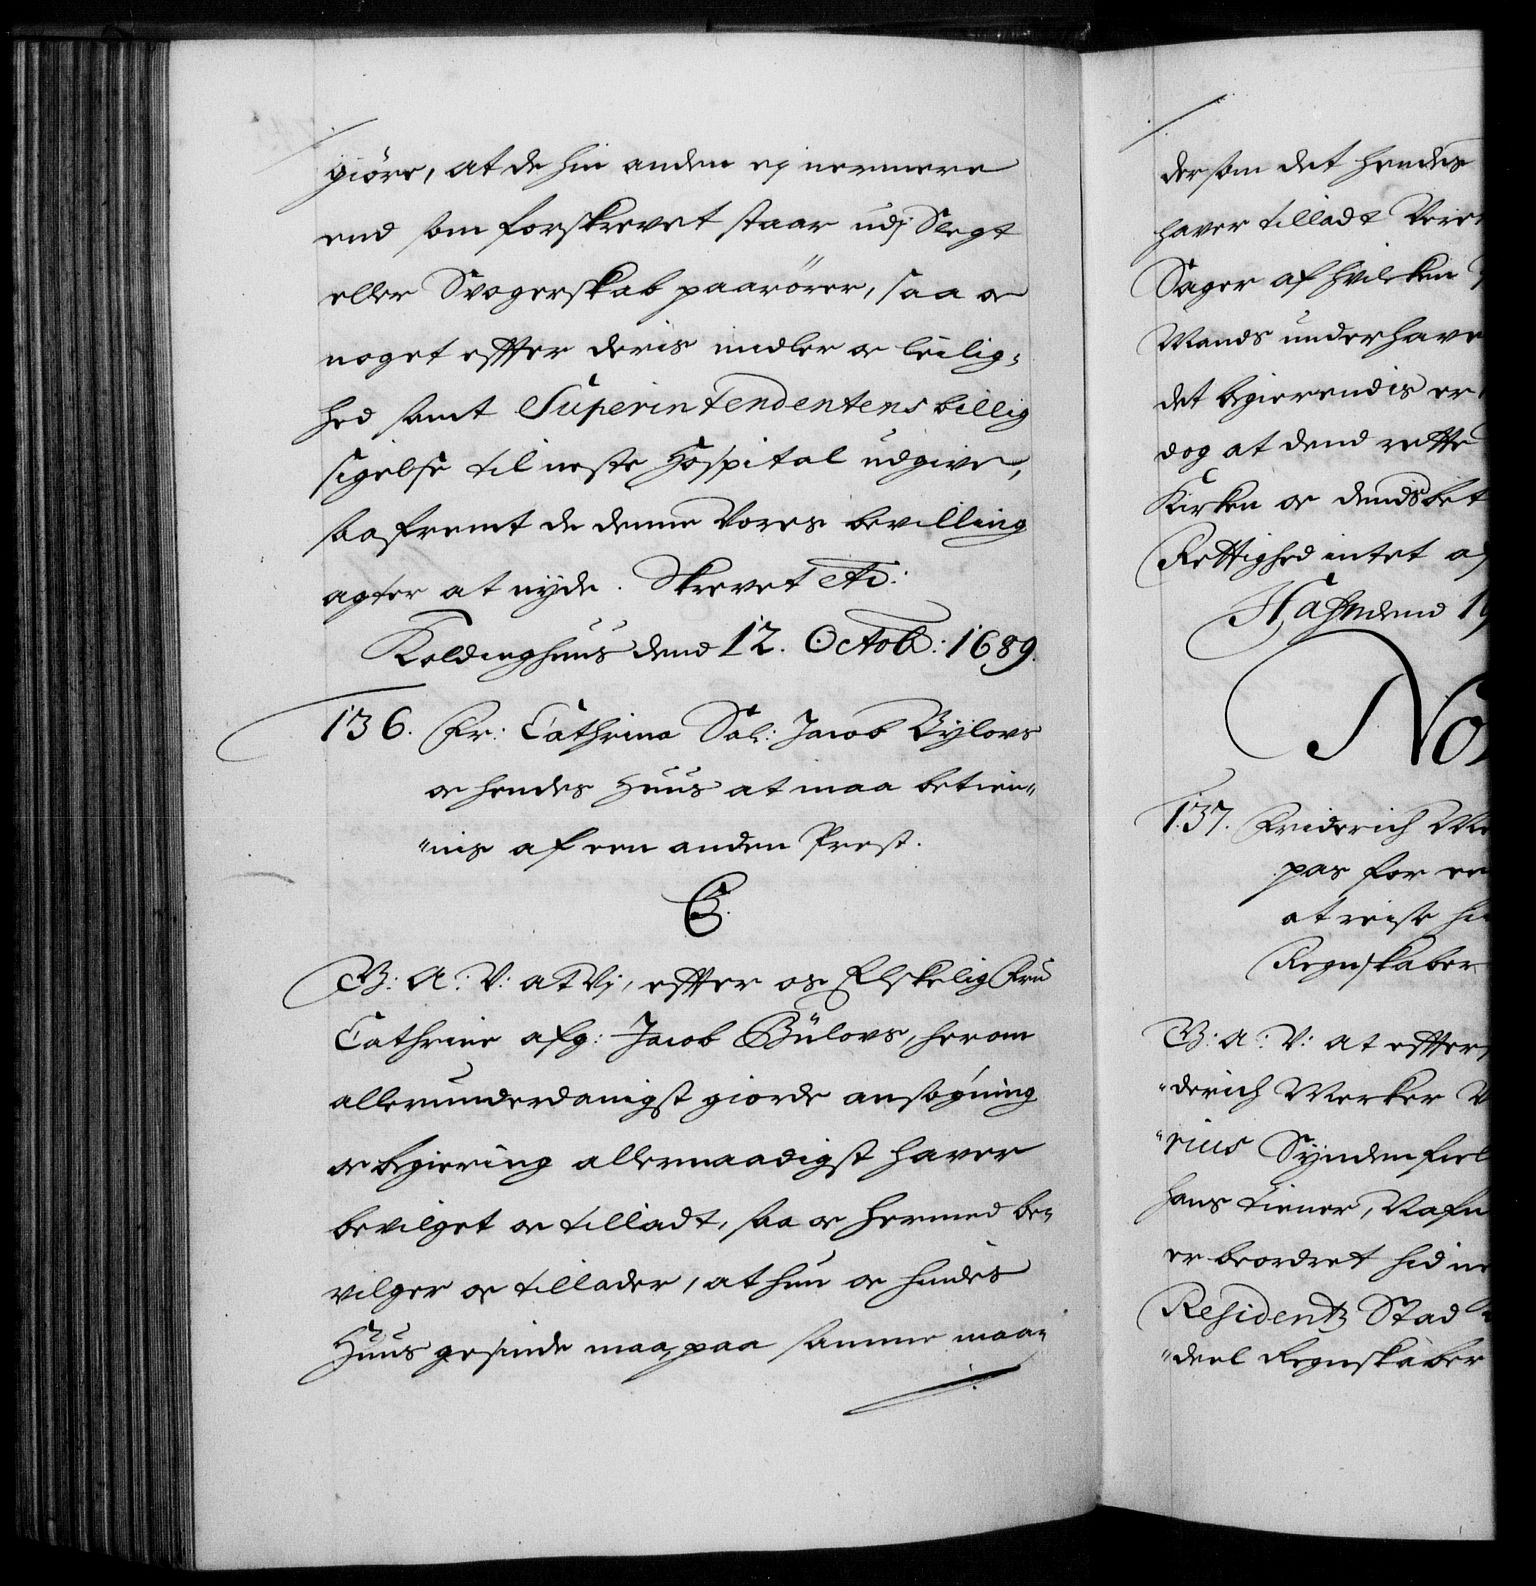 giöre, at de hin anden ej nermere
end som forskrevet staar udj Slegt
eller Svogerskab paarörer, saa oc
noget effter deris midler oc leilig-
hed samt Superintendentens billig
sigelse til neste Hospital udgive,
saafremt de denne Vores bevilling
agter at nyde. Skrevet etc:
Koldinghuus dend 12. Octob: 1689.
136. Fr: Cathrina Sal: Jacob Bylovs
oc hendes Huus at maa betien-
nis af een anden Prest.
C.
B: A: V: at Vj, effter os Elskelig Fru
Cathrine afg: Jacob Bülovs, herom
allerunderdanigst giorde ansøgning
oc begiering allernaadigst haver
bevilget oc tilladt, saa oc hermed be-
vilger oc tillader, at hun oc hindes
Huus gesinde maa, paa samme maa-
dersom det hendes
haver tilladt
Sager af hvilcken
Mands underhave
det begierendis er
dog at dend rette
Kirken oc dends bet
Rettighed intet
Hafn dend 1
No
137. Friderich Me
pas for en
at reise hi
Regnskaber
B: A: V: at effter
derich Merker
rius Syndenfiel
hans tiener, Nafn
er beordret hid ne
Residentz Stad
deel Regnskaber